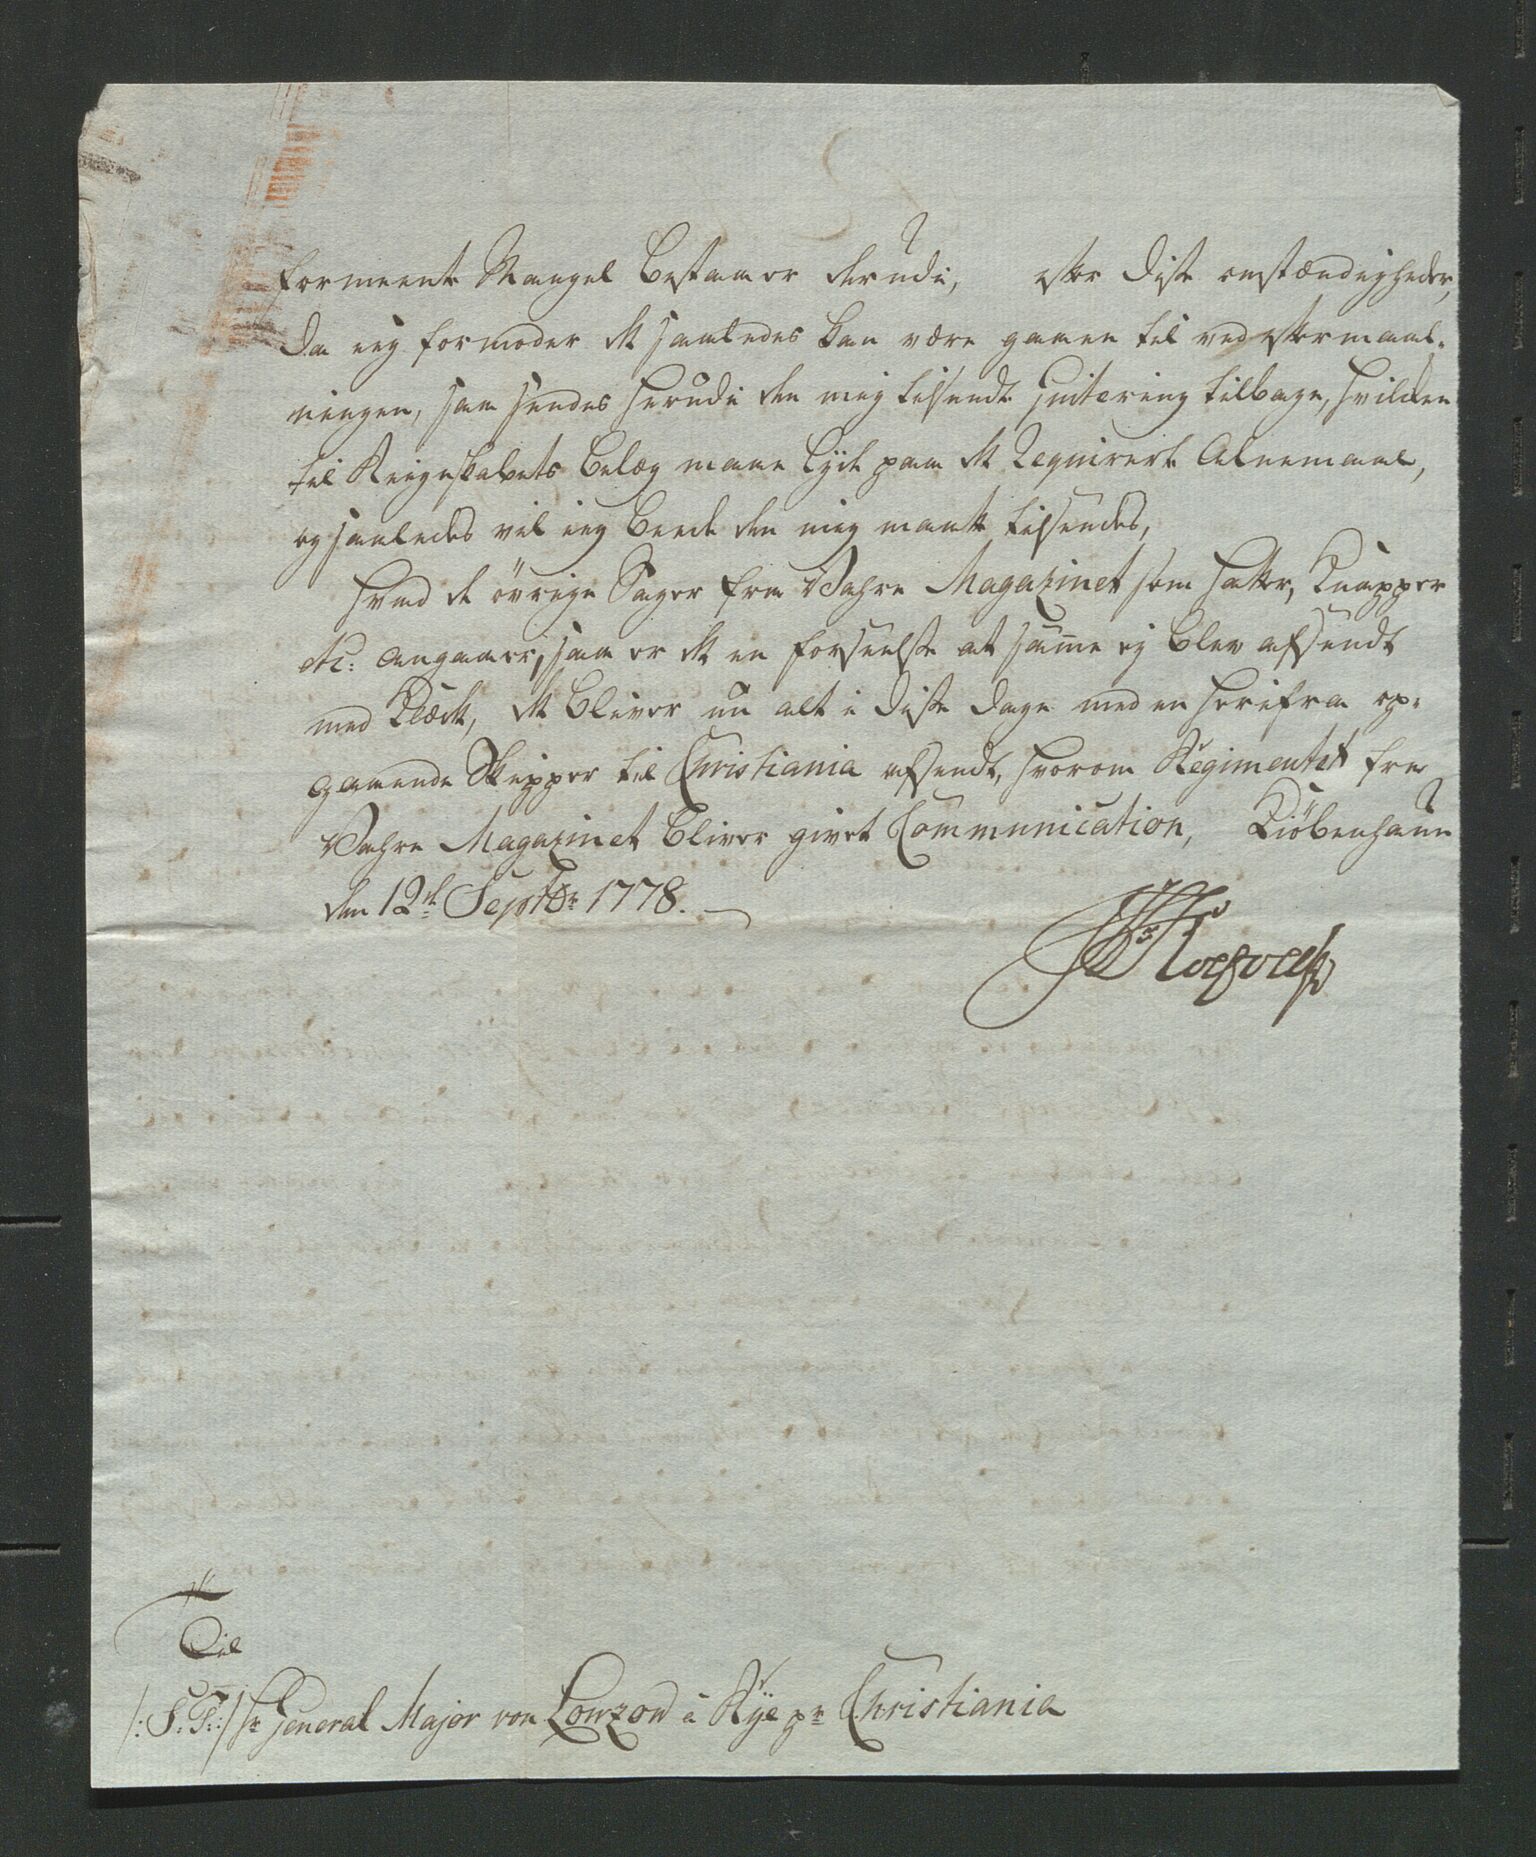 formeente Mangel bestaaer derudi, efter disse omstændigheder,
da ieg formoder det saaledes kan være gaaen til ved eftermaal-
ningen, saa sendes herudi den mig tilsendte Qvitering tilbage, hvilken
til Reigeskabets belæg maae lyde paa det Requirerte Alnemaal,
og saaledes vil ieg beede den mig maatte tilsendes,
Hvad de övrige Sager fra Vahre Magazinet som Hatter, Knapper
etc: angaaer, saa er det en forseelse at samme ej blev afsendt
med Klædet, det bliver nu alt i disse dage med en herifra op-
gaaende Skipper til Christiania afsendt, hvorom Regimentet fra
Vahre Magazinet bliver givet Communication, Kiöbenhavn
den 12te Septbr 1778.
Til
/: S: T: / Hr General Major von Lowzow à Rÿe pr Christiania